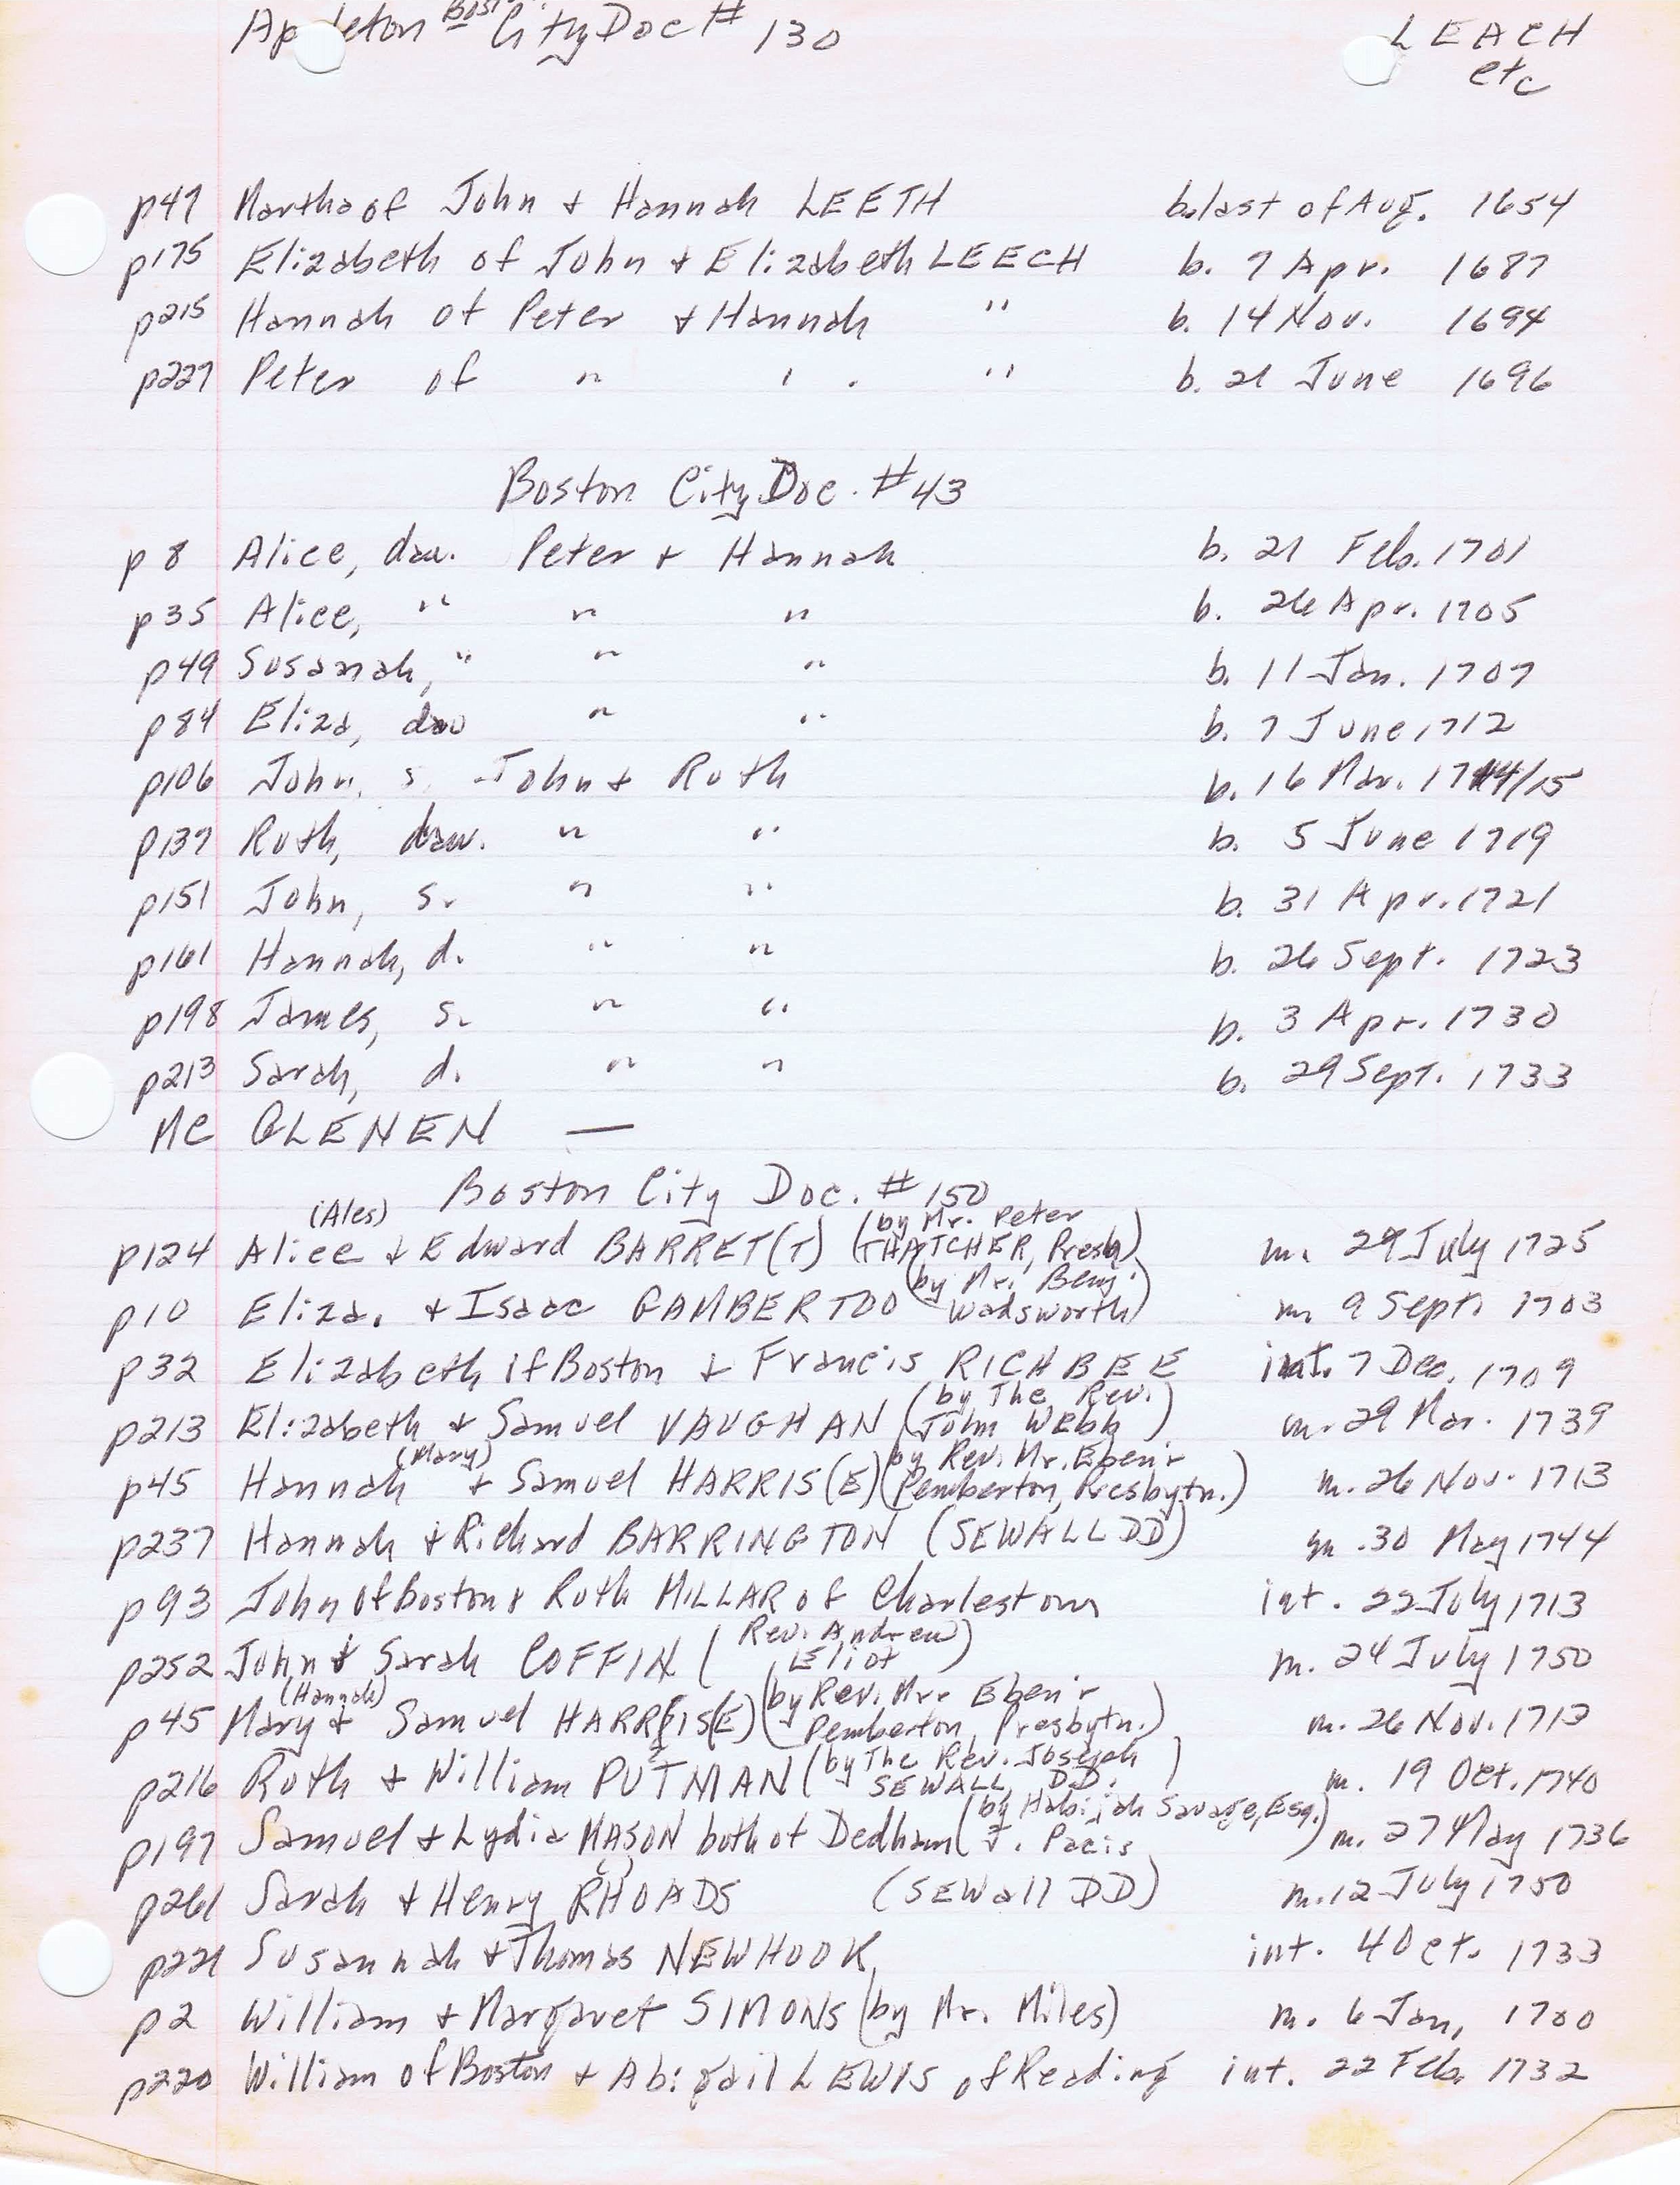 Appleton Bost City Doc # 130 LEACH
etc
p47 Martha of John + Hannah LEETH b. last of Aug. 1654
p175 Elizabeth of John + Elizabeth LEECH b. 7 Apr. 1687
p215 Hannah of Peter + Hannah " b. 14 Nov. 1694
p227 Peter of " " " b. 21 June 1696
Boston City Doc. #43
p 8 Alice, dau. Peter + Hannah b. 21 Feb. 1701
p35 Alice, " " " b. 26 Apr. 1705
p49 Susanah, " " " b. 11 Jan. 1707
p84 Eliza, dau " " b. 7 June 1712
p106 John, s. John + Ruth b. 16 Mar. 1714/15
p137 Ruth, dau. " " b. 5 June 1719
p151 John, s. " " b. 31 Apr. 1721
p161 Hannah, d. " " b. 26 Sept. 1723
p198 James, s. " " b. 3 Apr. 1730
p213 Sarah, d. " " b. 29 Sept. 1733
Mc GLENEN —
Boston City Doc. # 150
(Ales) (by Mr. Peter
p124 Alice + Edward BARRET(T) THATCHER, Presb) m. 29 July 1725
(by Mr. Benj.
p10 Eliza. + Isaac GAMBERTOO Wadsworth) m. 9 Sept. 1703
p32 Elizabeth if Boston + Francis RICHBEE int. 7 Dec. 1709
(by The Rev.
p213 Elizabeth + Samuel VAUGHAN John Webb) m. 29 Mar. 1739
(Mary) (by Rev. Mr. Eben'r
p45 Hannah + Samuel HARRIS(E) Pemberton, Presbytn.) m. 26 Nov. 1713
p237 Hannah + Richard BARRINGTON (SEWALL DD) m. 30 May 1744
p93 John of Boston + Ruth MILLAR of Charlestown int. 22 July 1713
(Rev. Andrew
p252 John + Sarah COFFIN Eliot) m. 24 July 1750
(Hannah) (by Rev. Mr. Eben'r
p45 Mary + Samuel HARRIS(E) Pemberton, Presbytn.) m. 26 Nov. 1713
(by The Rev. Joseph
p216 Ruth + William PUTMAN SEWALL, D.D.) m. 19 Oct. 1740
(by Habijah Savage, Esq.
p197 Samuel + Lydia MASON both of Dedham J. Pacis) m. 27 May 1736
p261 Sarah + Henry RHOADS (SEWall DD) m. 12 July 1750
p221 Susannah + Thomas NEWHOOK int. 4 Oct. 1733
p2 William + Margaret SIMONS (by Mr. Miles) m. 6 Jan, 1700
p220 William of Boston + Abigail LEWIS of Reading int. 22 Feb. 1732